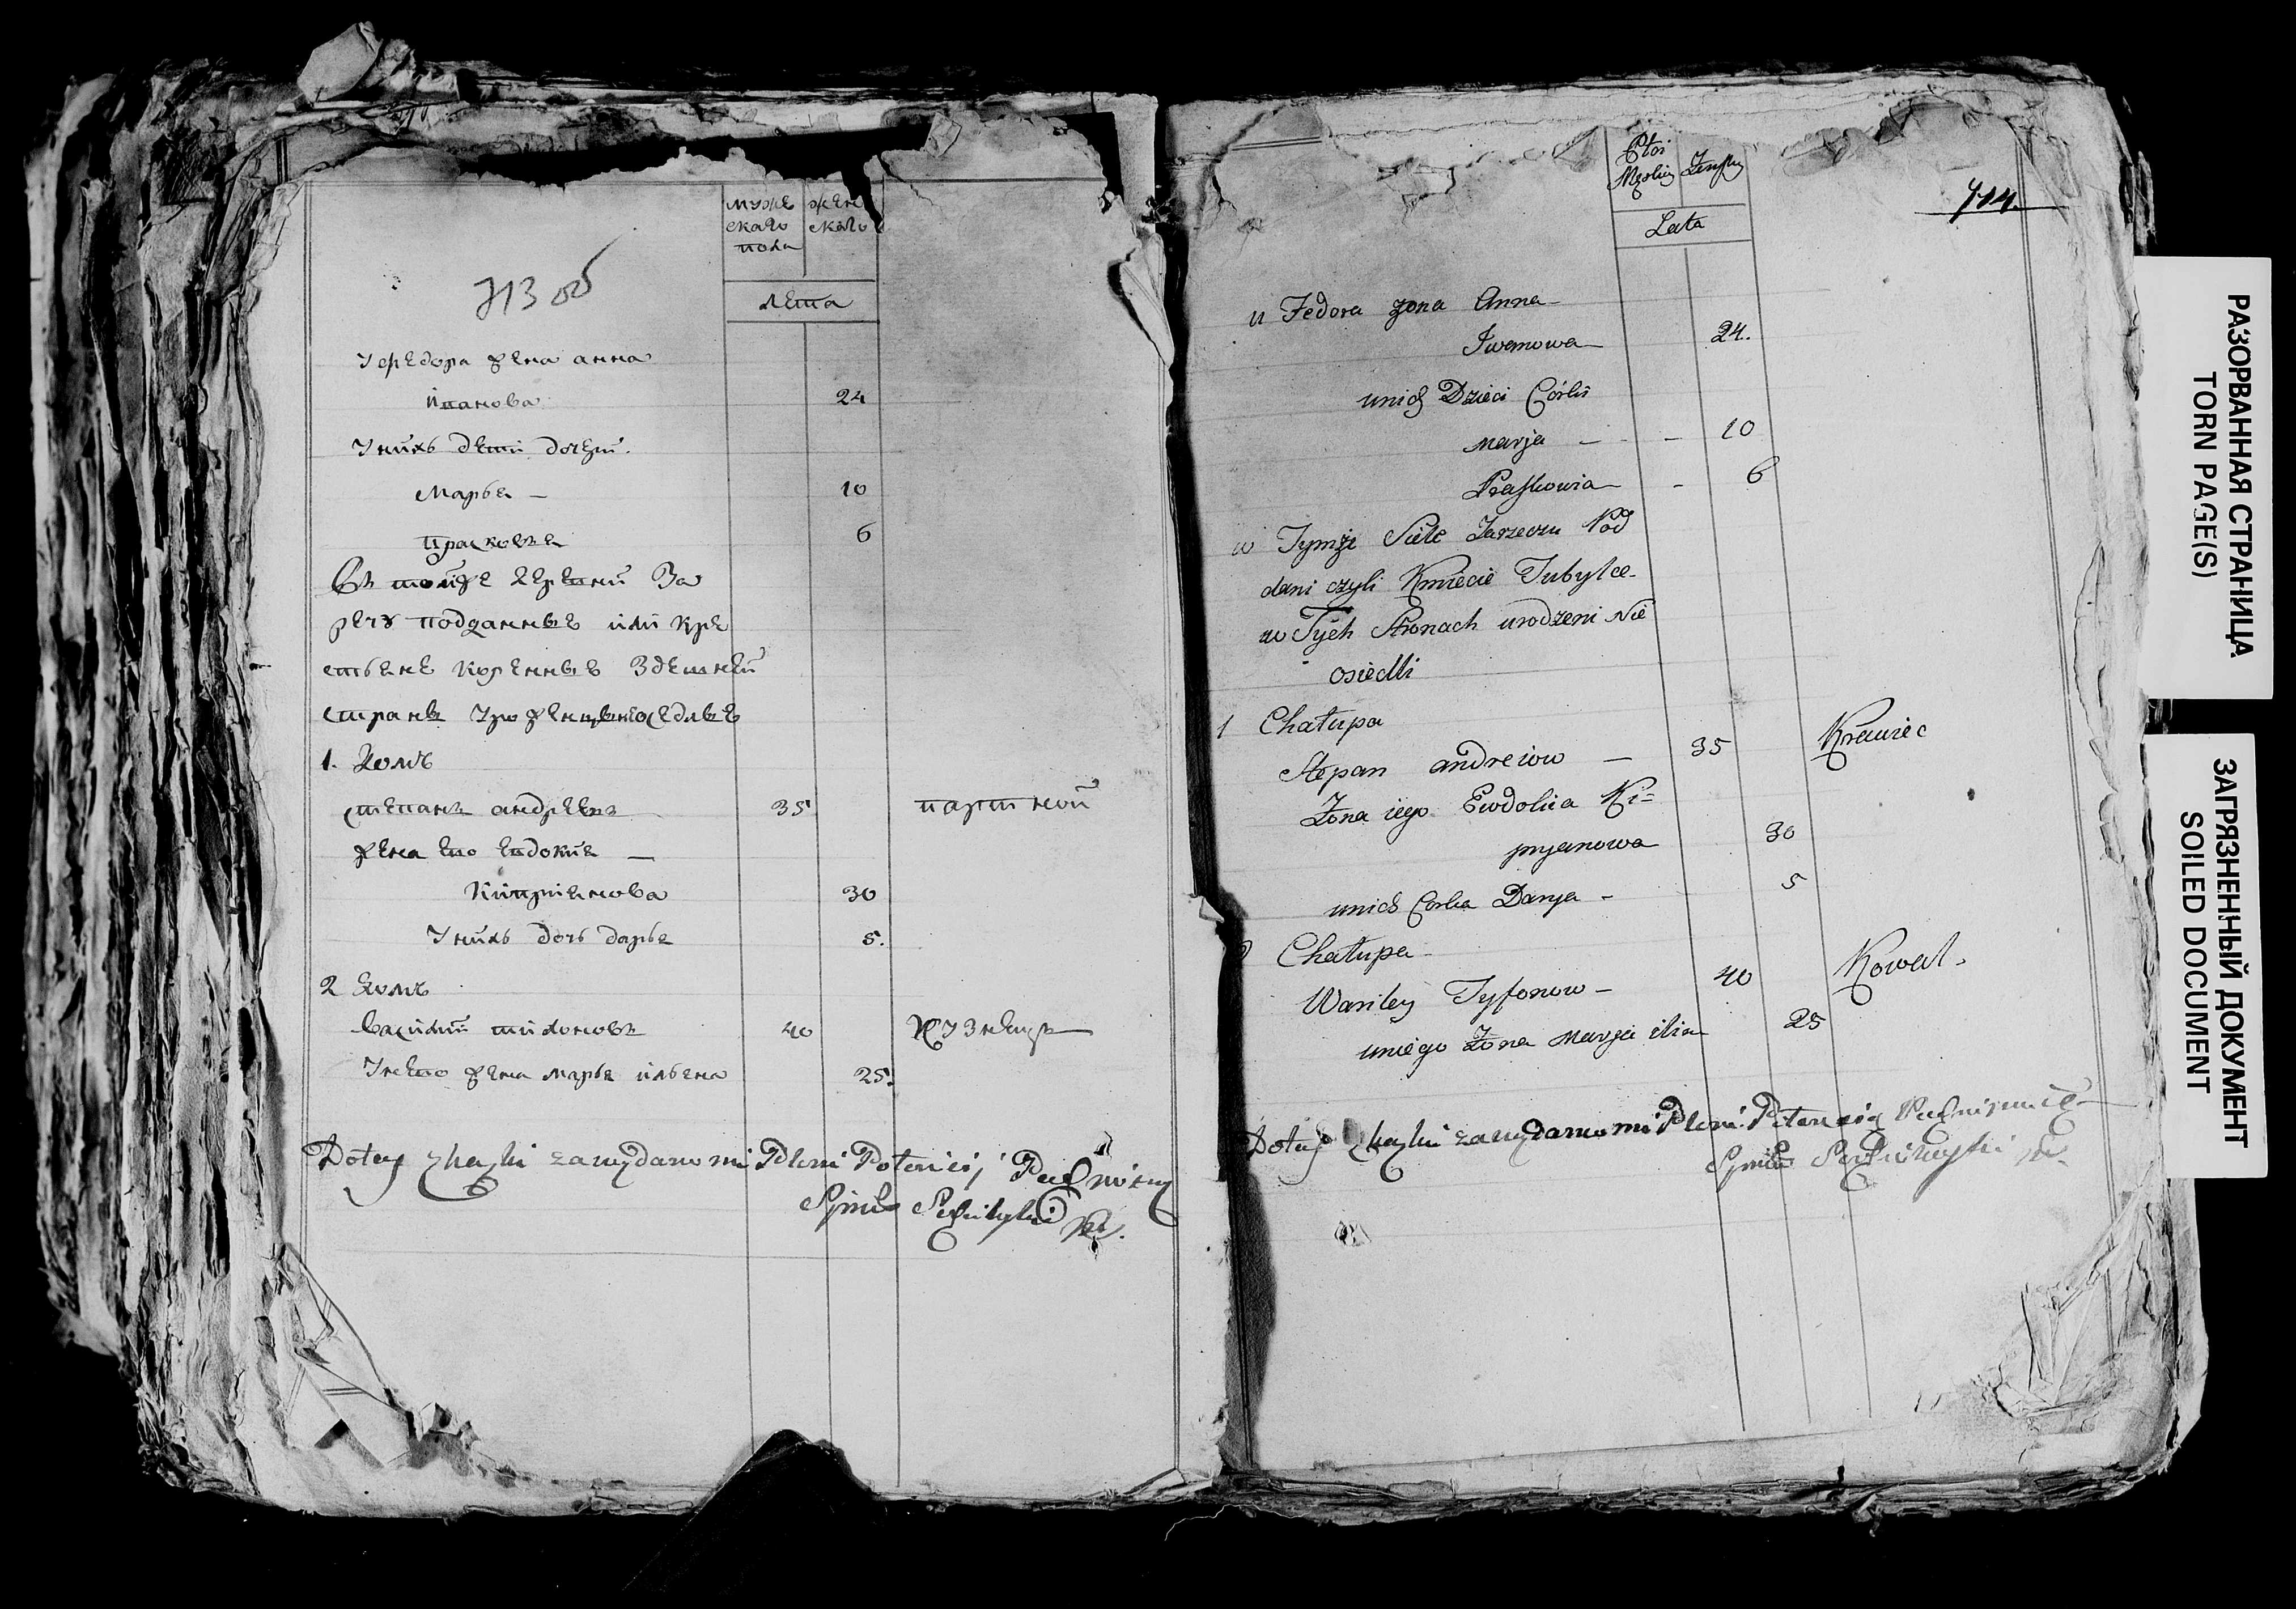 муже
скаго
пола
жен
скаго
лета
713 об
У федора жена анна
иванова 24
У нихъ дети дочери
Марья — 10
прасковья 6
Въ тойже деревни За
речу подданные или кре
стьяне коренные здешней
страны урожденцы неоседлые
1. Домъ
степанъ андреевъ 35 партной
жена его евдокия —
Киприянова 30
У нихъ дочь дарья 5.
2 Домъ
василий тихоновъ 40 кузнецъ
У него жена марья ильина 25.
Do tey skazki za wydano mi Pleni Potencij
Płci
Męskiey Żeńskiey
Lata
714.
u Fedora żona Anna
Iwanowa 24.
u nich Dzieci Córki
marja — — 10
Praskowia — 6
w Tymże Siele Zarzeczu Pod
dani czyli Kmiecie Tubylce
w Tych Stronach urodzeni Nie
osiedli
1 Chałupa
Stepan andreiow — 35 Krawiec
Żona iego Ewdokia Ki=
pryanowa 30
u nich Corka Darya — 5
Chałupa
Wasiley Tyfonow — 40 Kowal.
u niego Żona marja ilia 25
Do tey skazki za wydano mi Pleni Potencią
РАЗОРВАННАЯ СТРАНИЦА
TORN PAGE(S)
ЗАГРЯЗНЕННЫЙ ДОКУМЕНТ
SOILED DOCUMENT